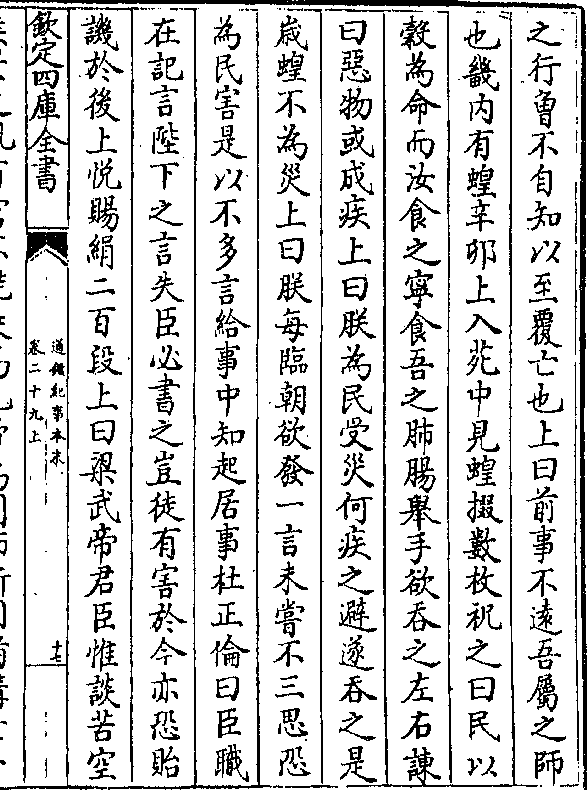 之行曾不自知以至覆亡也上曰前事不遠吾屬之師
也畿内有蝗辛卯上入苑中見蝗掇數枚祝之曰民以
穀為命而汝食之寧食吾之肺腸舉手欲吞之左右諫
曰惡物或成疾上曰朕為民受災何疾之避遂吞之是
歲蝗不為災上曰朕每臨朝欲發一言未嘗不三思恐
為民害是以不多言給事中知起居事杜正倫曰臣職
在記言陛下之言失臣必書之豈徒有害於今亦恐貽
譏於後上悦賜絹二百段上曰梁武帝君臣惟談苦空
欽定四庫全書
通鑑紀事本末
卷二十九上
十七